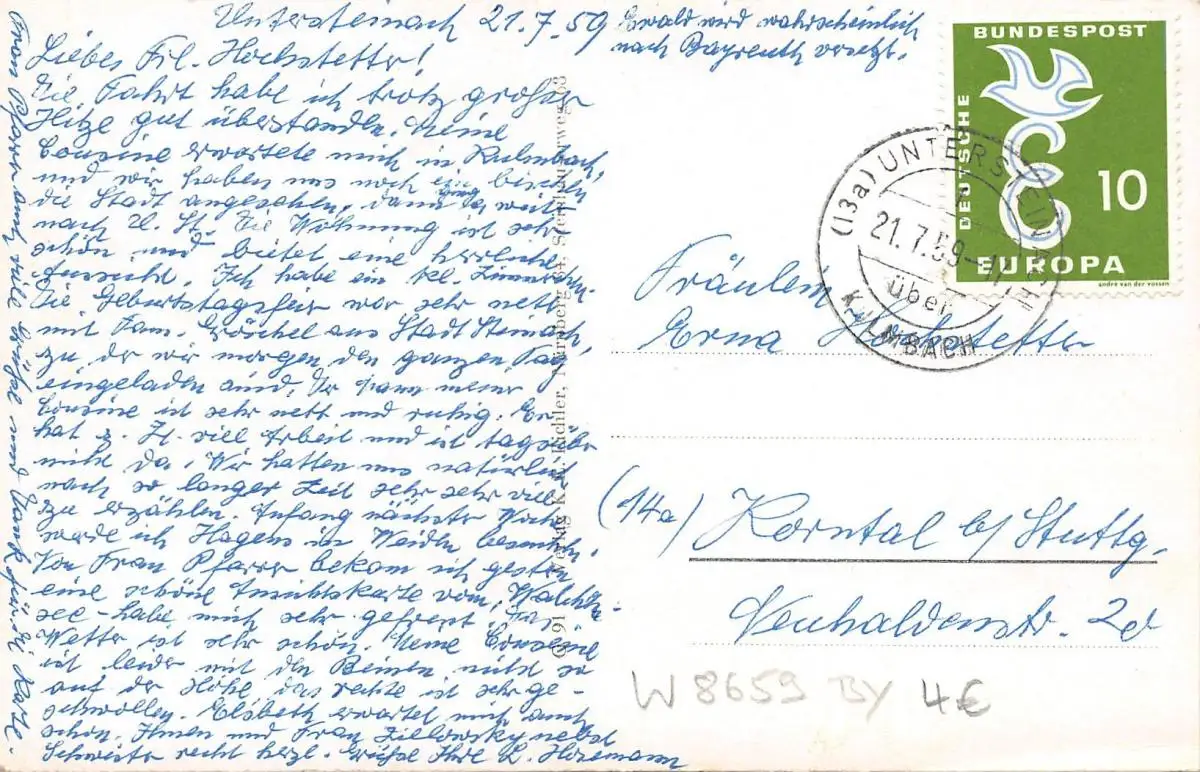 Untersteinach 21.7.59
Liebes Frl. Hochstetter!
Die Fahrt habe ich trotz großer
Hitze gut überstanden. Meine
Cousine erwartete mich in Kulmbach,
und wir haben uns noch ein bischen
die Stadt angesehen, dann ging es weiter
nach U. St. Die Wohnung ist sehr
schön und bietet eine herrliche
Aussicht. Ich habe ein kl. Zimmerchen.
Die Geburtstagsfeier war sehr nett
mit Fam. aus Stadt Steinach,
zu der wir morgen den ganzen Tag
eingeladen sind. Der Mann meiner
Cousine ist sehr nett und ruhig. Er
hat z. Zt. viel Arbeit und ist tagsüber
nicht da. Wir hatten uns natürlich
nach so langer Zeit sehr sehr viel
zu erzählen. Anfang nächster Woche
werde ich Hagens in Weiden besuchen.
Von Frau Pfarrer bekam ich gestern
eine schöne Ansichtskarte vom Walchen-
see - habe mich sehr gefreut. Das
Wetter ist sehr schön. Meine Cousine
ist leider mit den Beinen nicht so
auf der Höhe, das rechte ist sehr ge-
schwollen. Elsbeth erwartet mich auch
schon. Ihnen und Frau Zillowsky nebst
Schwester recht herzl. Grüße Ihre L. Hosemann
Frau Pfarrer auch viele Grüße und Dank für die Karte.
Ewald wird wahrscheinlich
nach Bayreuth versetzt.
Verlag K. R. Richler, Nürnberg
DEUTSCHE
BUNDESPOST
10
EUROPA
andre van der vossen
(13a) UNTERSTEINACH
21.7.59-11
über
KULMBACH
Fräulein
Erna Hochstetter
(14a) Korntal b/ Stuttg.
Neuhaldenstr. 20
W 8659 BY 4€